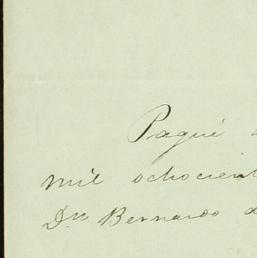 Pagué
mil ochocient
Dn Bernardo d